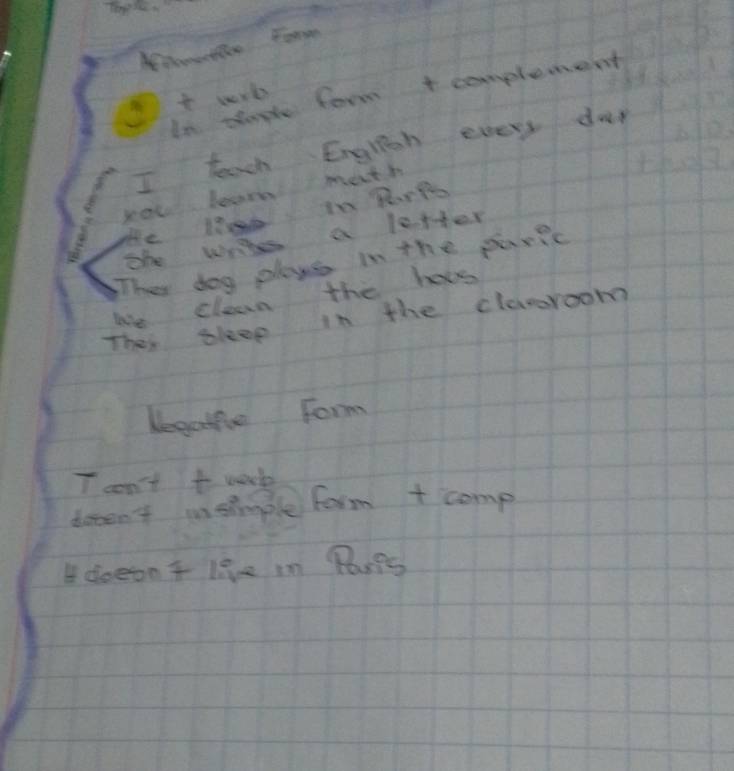 Topic.
Affirmative Form
+ verb
in simple form + complement
I teach English every day
you learn math
He lives in Paris
She writes a letter
Ther dog plays in the paric
We clean the hoes
They sleep in the classroom
Negative Form
I don't + verb
doesn't in simple form + comp
H doesn't live in Paris